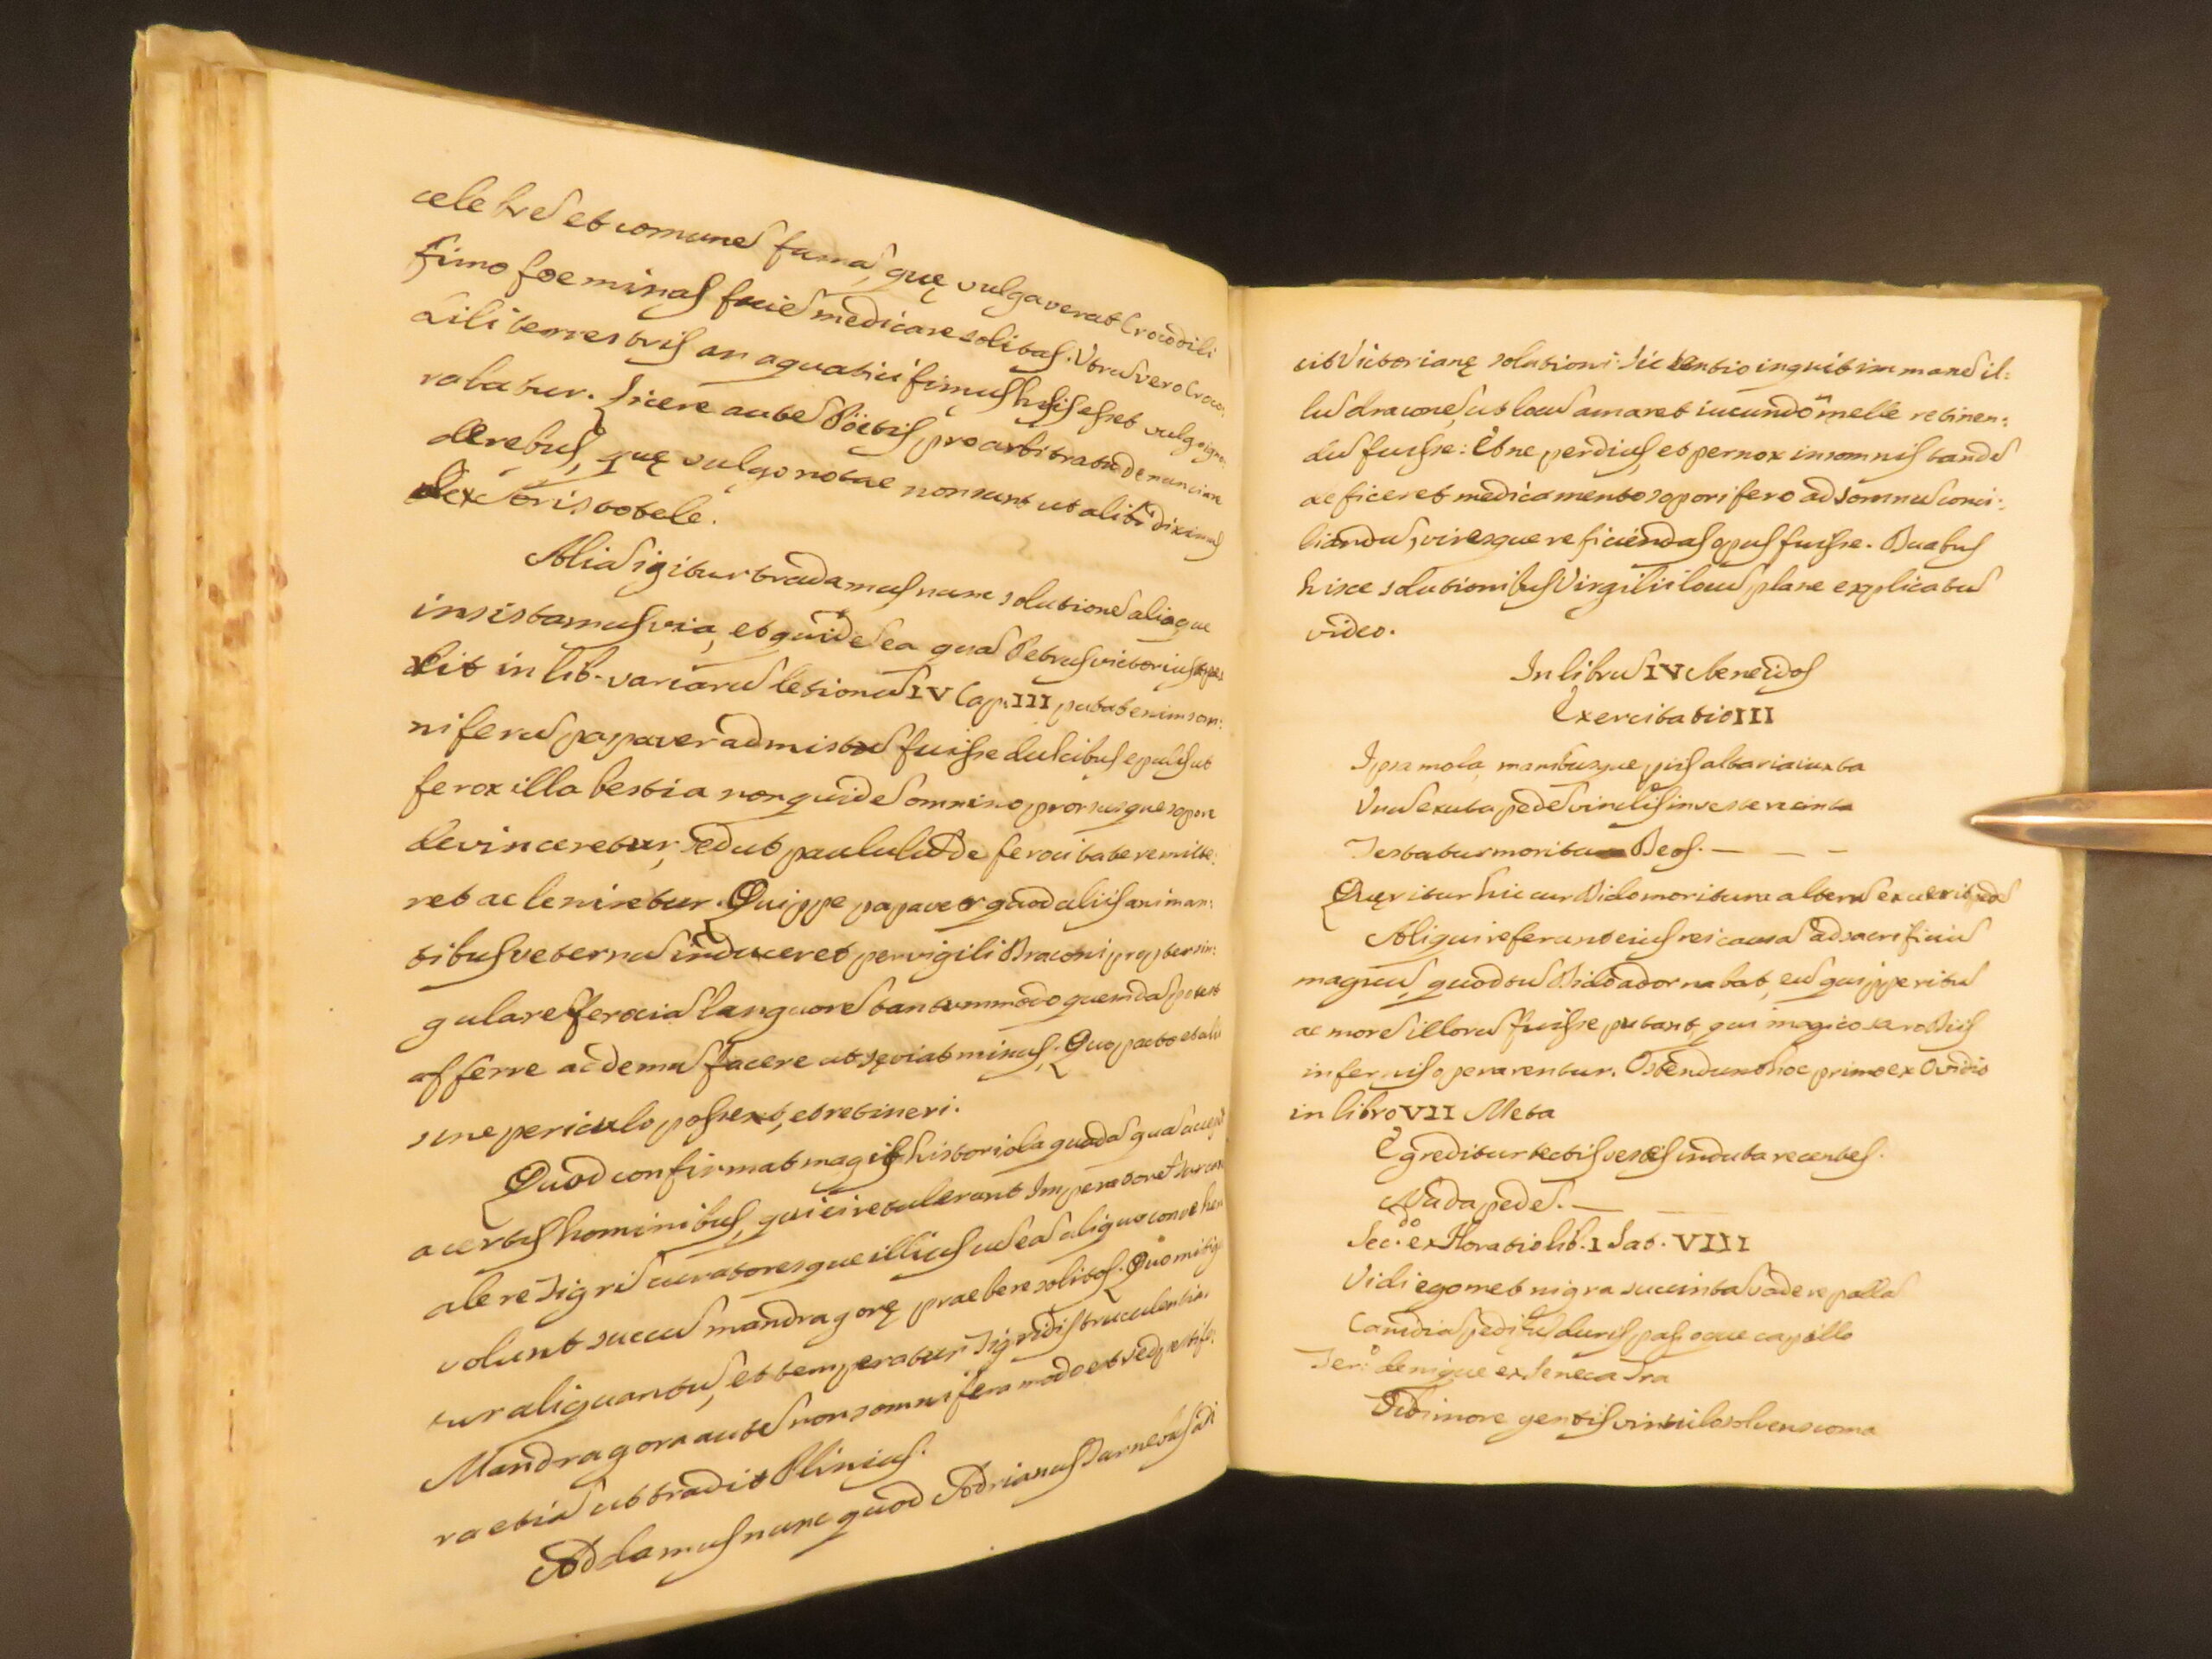 celebrē et comunē famā, quę vulgaverat Crocodili
fimo foeminas faciē medicare solitas. Utrū vero Croco:
dili terrestris an aquatici fimus hisis esset vulgo igno:
rabatur. Licere autē Pöetis pro arbitratu denunciare
de rebus, quę vulgo notae non sunt ut alibi diximus
ex Aristotele.
Aliā igitur tradamus nunc solutionē aliaque
insistamus via, et quidē ea qua Petrus victorius
dit in lib. variarū letionū IV Cap. III putat enim som:
niferū papaver admistū fuisse dulcibus epulis ut
ferox illa bestia non quidē omnino, prorsusque sopore
devinceretur, sed ut paululū de ferocitate remitte:
ret ac leniretur. Quippe papaver quod aliis animan:
tibus veternū induceret pervigili Draconi propter sin:
gularē ferociā languorē tantummodo quemdā potuit
afferre ac demū facere ut sęviat minus. Quo pacto et ali
sine periculo posset, et retineri.
Quod confirmat magis historiola quadā quā accepit
a certis hominibus, qui ei retulerant Imperatorē Turcarū
alere Tigrī curatoresque illius cū eā aliquo convehere
volunt succū mandragorę praebere solitos. Quo mitiga
tur aliquantū, et temperatur Tigridis truculentia.
Mandragora autē non somnifera modo est sed pestife:
ra etiā ut tradit Plinius.
Addamus nunc quod Adrianus Turnebus adi
cit Victorianę solutioni. Sic tentio inquit immanē il:
lū draconē, ut locū amaret iucundo melle retinen:
dū fuisse: Et ne perdius, et pernox insomnis tandē
deficeret medicamento soporifero ad somnū conci:
liandū, viresque reficiendas opus fuisse. Duabus
hisce solutionibus Virgilii locū plane explicatū
video.
In librū IV Aeneidos
Exercitatio III
Ipsa mola, manibusque piis altaria iuxta
Unū exuta pedē vinclis in veste recincta
Testatur moritura Deos. — — —
Quęritur hic cur Dido moritura alterū exuerit pedē
Aliqui referunt eius rei causā ad sacrificiū
magicū, quod tū Dido adornabat, eū quippe ritū
ac morē illorū fuisse putant, qui magico sacro Diis
infernis operarentur. Ostendunt hoc primo ex Ovidio
in libro VII Meta
Egreditur tectis vestes induta recentes.
Nuda pedē. — —
Sec.do ex Horatio lib. I Sat. VIII
Vidi egomet nigra succintā vadere palla
Canidiā pedibus nudis, passoque capillo
Ter.o denique ex Seneca Tra
Tibi more gentis vinculo solvens coma